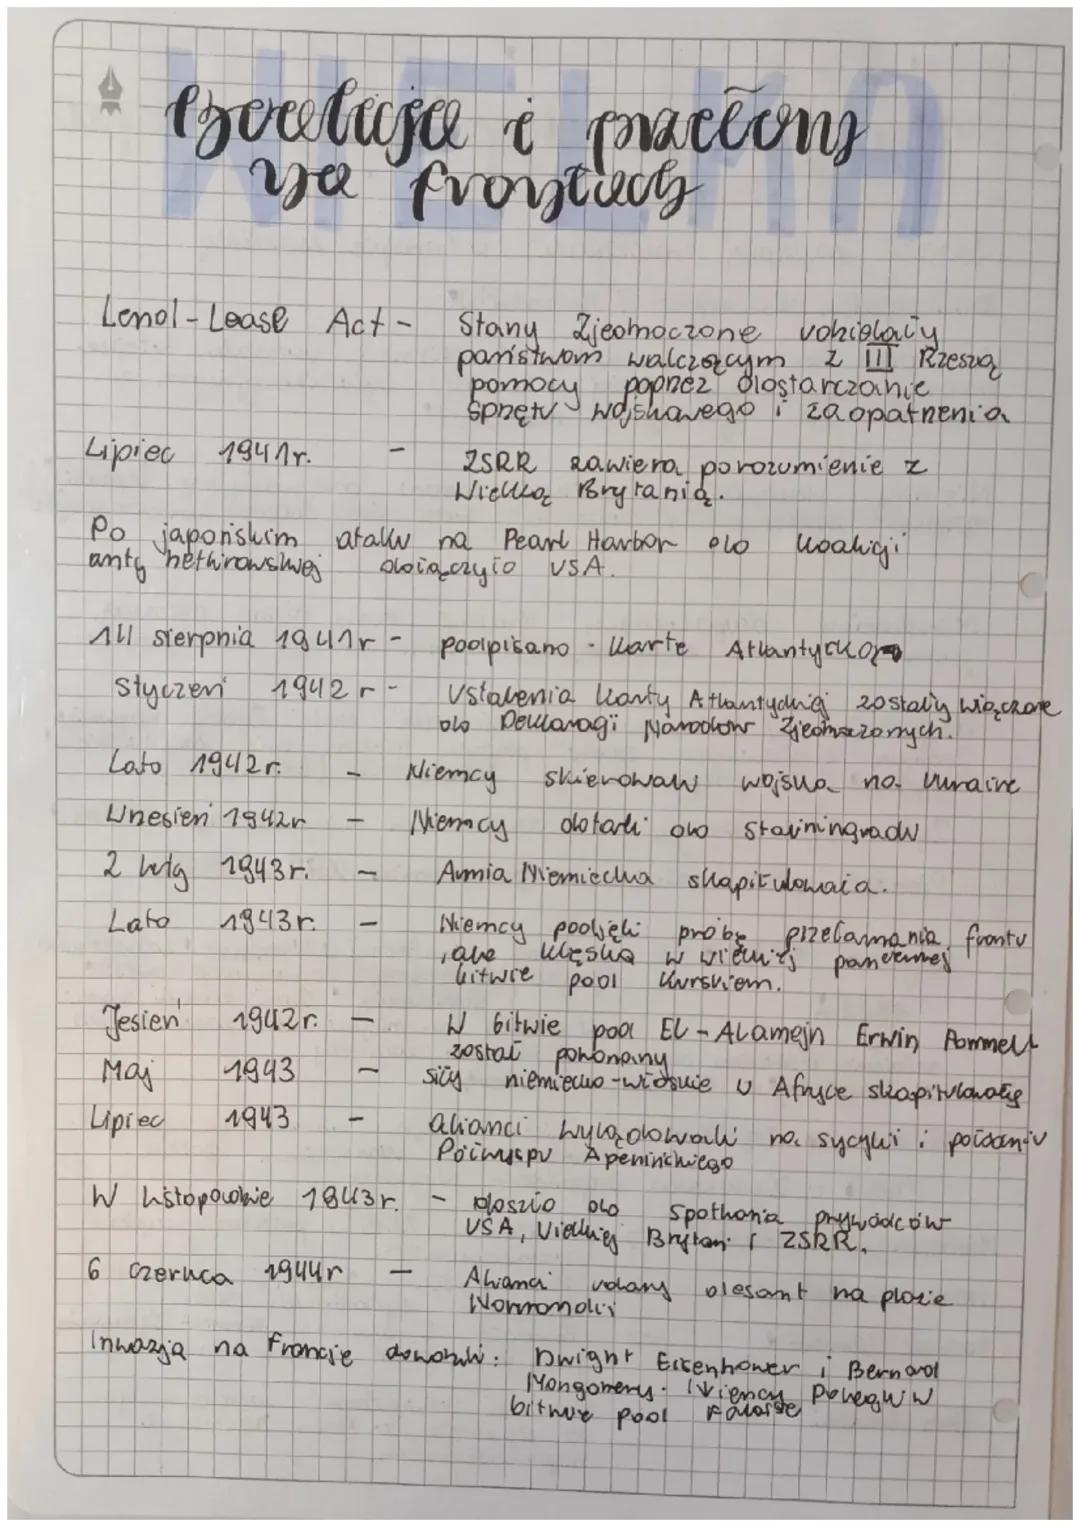 WIELKA
Koalicja i przełomy
na frontach
Lend-Lease Act - Stany Zjednoczone udzielały
państwom walczącym z III Rzeszą
pomocy poprzez dostarczanie
sprzętu wojskowego i zaopatrzenia
Lipiec 1941r. - ZSRR zawiera porozumienie z
Wielką Brytanią.
Po japońskim ataku na Pearl Harbor do koalicji
anty hetlirowskiej dołączyło USA.
14 sierpnia 1941r - podpisano - Karte Atlantycką
Styczeń 1942r - Ustalenia karty Atlantyckiej zostały włączone
do Deklaracji Narodów Zjednoczonych.
Lato 1942r. - Niemcy skierowali wojska na Ukraine
Wrzesień 1942r - Niemcy dotarli do Stalningradu
2 luty 1943r. - Armia Niemiecka skapitulowała.
Lato 1943r. - Niemcy podjęli próbę przełamania frontu
, ale klęska w wielkiej pancernej
bitwie pod Kurskiem.
Jesień 1942r. - W bitwie pod El-Alamejn Erwin Rommell
został pokonany
Maj 1943 - siły niemiecko-włoskie w Afryce skapitulowały
Lipiec 1943 - alianci wylądowali na sycylii i połdaniu
Półwyspu Apenińskiego
W listopadzie 1943r. - doszło do spotkania przywódców
USA, Wielkiej Brytani i ZSRR.
6 czerwca 1944r - Alianci udany desant na plaże
Normandii
Inwazja na Francje dowodzili: Dwight Eisenhower i Bernard
Mongomery. Niemcy Polegli w
bitwie pod Falaise